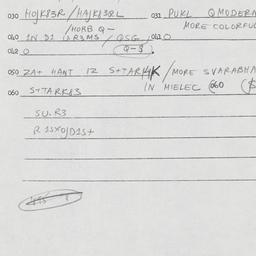 030 HOJK83R / HAJK838L 031 PUKL QMODERA
/HORB Q- MORE COLORFUL
040 IN D1 / 2R3MS / QSG, 041 O
042 O Q-8.
050 ZA+ HANT IZ S+TARK4K / MORE SVARABHA
060 S+TARK83 IN MIELEC 060
SU.R3
R 1SXOJD1S+